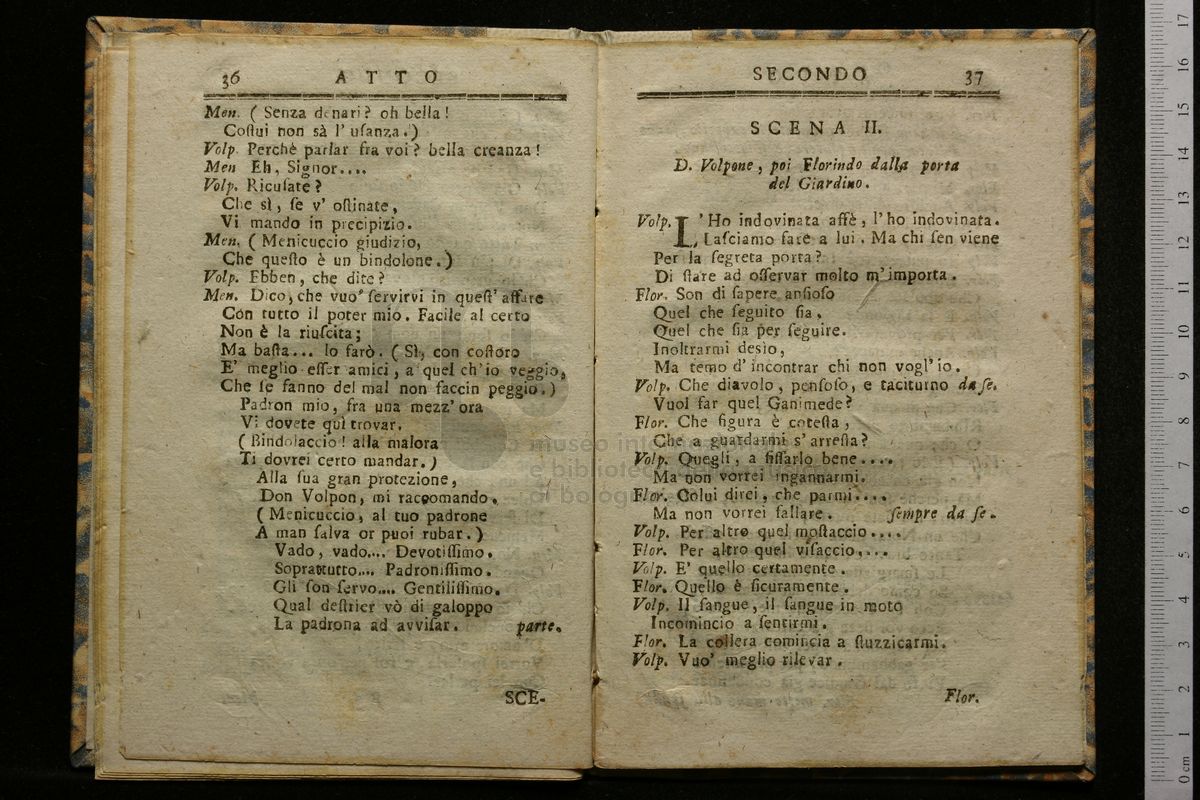 36 ATTO
Men. ( Senza denari? oh bella!
Coſtui non sà l' uſanza.)
Volp. Perchè parlar fra voi? bella creanza!
Men Eh, Signor....
Volp. Ricuſate?
Che sì, ſe v' oſtinate,
Vi mando in precipizio.
Men. ( Menicuccio giudizio,
Che queſto è un bindolone.)
Volp. Ebben, che dite?
Men. Dico, che vuo' ſervirvi in queſt' affare
Con tutto il poter mio. Facile al certo
Non è la riuſcita;
Ma baſta... lo farò. ( Sì, con coſtoro
E' meglio eſſer amici, a quel ch'io veggio,
Che ſe fanno del mal non faccin peggio.)
Padron mio, fra una mezz' ora
Vi dovete quì trovar.
( Bindolaccio! alla malora
Ti dovrei certo mandar.)
Alla ſua gran protezione,
Don Volpon, mi raccomando.
( Menicuccio, al tuo padrone
A man ſalva or puoi rubar.)
Vado, vado.... Devotiſſimo.
Soprattutto.... Padroniſſimo.
Gli ſon ſervo.... Gentiliſſimo.
Qual deſtrier vò di galoppo
La padrona ad avviſar. parte.
SCE-
SECONDO 37
SCENA II.
D. Volpone, poi Florindo dalla porta
del Giardino.
Volp. L'Ho indovinata affè, l'ho indovinata.
Laſciamo fare a lui. Ma chi ſen viene
Per la ſegreta porta?
Di ſtare ad oſſervar molto m'importa.
Flor. Son di ſapere anſioſo
Quel che ſeguito ſia,
Quel che ſia per ſeguire.
Inoltrarmi desio,
Ma temo d' incontrar chi non vogl' io.
Volp. Che diavolo, penſoſo, e taciturno da ſe.
Vuol far quel Ganimede?
Flor. Che figura è coteſta,
Che a guardarmi s' arreſta?
Volp. Quegli, a fiſſarlo bene....
Ma non vorrei ingannarmi.
Flor. Colui direi, che parmi....
Ma non vorrei fallare. ſempre da ſe.
Volp. Per altro quel moſtaccio....
Flor. Per altro quel viſaccio....
Volp. E' quello certamente.
Flor. Quello è ſicuramente.
Volp. Il ſangue, il ſangue in moto
Incomincio a ſentirmi.
Flor. La collera comincia a ſtuzzicarmi.
Volp. Vuo' meglio rilevar.
Flor.